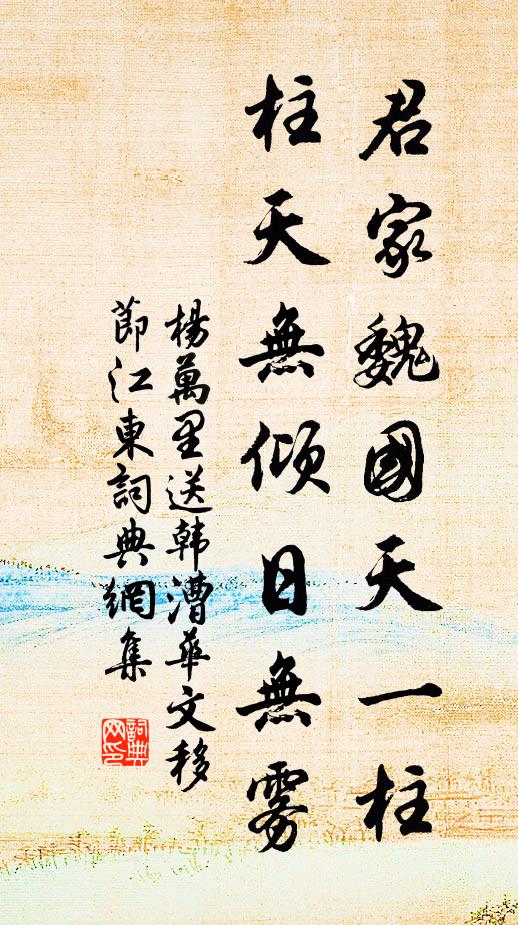 君家魏國天一柱
柱天無傾日無雾
楊萬里送韩漕華文移
節江東詞典網集
詞典网印